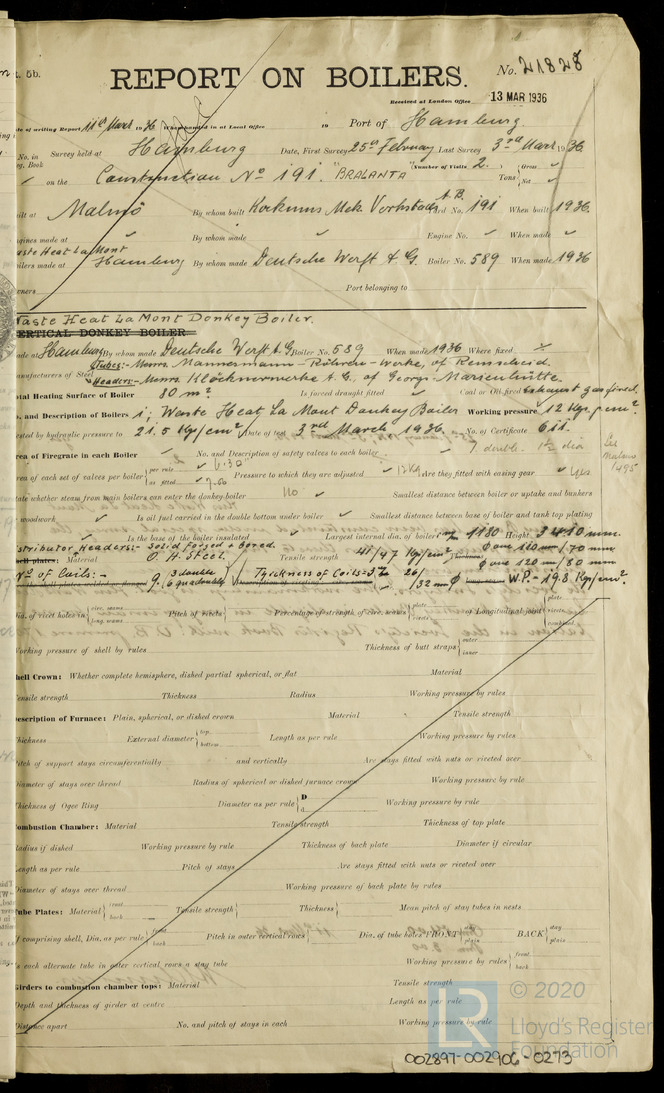 5b.
REPORT ON BOILERS.
No. 21828
Received at London Office
13 MAR 1936
te of writing Report 11th Mar 1936 When handed in at Local Office in Port of Hamburg
No. in Survey held at Hamburg Date, First Survey 25th February Last Survey 3rd Mar. 1936.
g. Book
(Number of Visits 2.)
on the Construction No 191. "BRAGANTA" Tons { Gross ✓ Net ✓
uilt at Malmö By whom built Kockums Mek. Verkstads A.B. Yard No. 191 When built 1936.
ngines made at ✓ By whom made ✓ Engine No. ✓ When made ✓
Waste Heat La Mont
oilers made at Hamburg By whom made Deutsche Werft A.G. Boiler No. 589 When made 1936
wners Port belonging to
Waste Heat La Mont Donkey Boiler.
ERTICAL DONKEY BOILER
ade at Hamburg By whom made Deutsche Werft A.G. Boiler No. 589 When made 1936 Where fixed
Tubes:- Messrs. Mannesmann-Röhren-Werke, of Remscheid.
anufacturers of Steel
Headers:- Messrs. Klöcknerwerke A.G., of Georgs-Marienhütte.
otal Heating Surface of Boiler 80 m². Is forced draught fitted ✓ Coal or Oil fired exhaust gas fired.
o. and Description of Boilers 1; Waste Heat La Mont Donkey Boiler Working pressure 12 Kgs/cm².
ested by hydraulic pressure to 21.5 Kg/cm² Date of test 3rd March 1936 No. of Certificate 611.
rea of Firegrate in each Boiler ✓ No. and Description of safety valves to each boiler 1 double. 1½ dia
See Malmö 1495
rea of each set of valves per boiler { per rule as fitted Pressure to which they are adjusted 12 Kg Are they fitted with easing gear ✓ yes
tate whether steam from main boilers can enter the donkey boiler no ✓ Smallest distance between boiler or uptake and bunkers
woodwork ✓ Is oil fuel carried in the double bottom under boiler ✓ Smallest distance between base of boiler and tank top plating
✓ Is the base of the boiler insulated ✓ Largest internal dia. of boiler 1180 Height 3410 mm.
Distributor Headers:- Solid Forged + Bored.
hell plates: Material O.H. Steel. Tensile strength 41/47 Kg/cm²
No of Coils:- 9. 3 double 6 quadruple Thickness of Coils 32 26/32 mm φ W.P.= 19.8 Kgs/cm².
Dia. of rivet holes in { circ. seams long. seams Pitch of rivets { Percentage of strength of circ. seams { plate rivets of Longitudinal joint { plate rivets combined
Working pressure of shell by rules Thickness of butt straps { outer inner
hell Crown: Whether complete hemisphere, dished partial spherical, or flat Material
ensile strength Thickness Radius Working pressure by rules
escription of Furnace: Plain, spherical, or dished crown Material Tensile strength
hickness External diameter { top bottom Length as per rule Working pressure by rules
itch of support stays circumferentially and vertically Are stays fitted with nuts or riveted over
iameter of stays over thread Radius of spherical or dished furnace crown Working pressure by rule
hickness of Ogee Ring Diameter as per rule { D d Working pressure by rule
ombustion Chamber: Material Tensile strength Thickness of top plate
adius if dished Working pressure by rule Thickness of back plate Diameter if circular
ength as per rule Pitch of stays Are stays fitted with nuts or riveted over
iameter of stays over thread Working pressure of back plate by rules
ube Plates: Material { front back Tensile strength { Thickness { Mean pitch of stay tubes in nests
f comprising shell, Dia. as per rule { front back Pitch in outer vertical rows { Dia. of tube holes FRONT { stay plain BACK { stay plain
s each alternate tube in outer vertical rows a stay tube Working pressure by rules { front back
irders to combustion chamber tops: Material Tensile strength
epth and thickness of girder at centre Length as per rule
istance apart No. and pitch of stays in each Working pressure by rule
© 2020
LR
Lloyd's Register
Foundation
002897-002906-0273